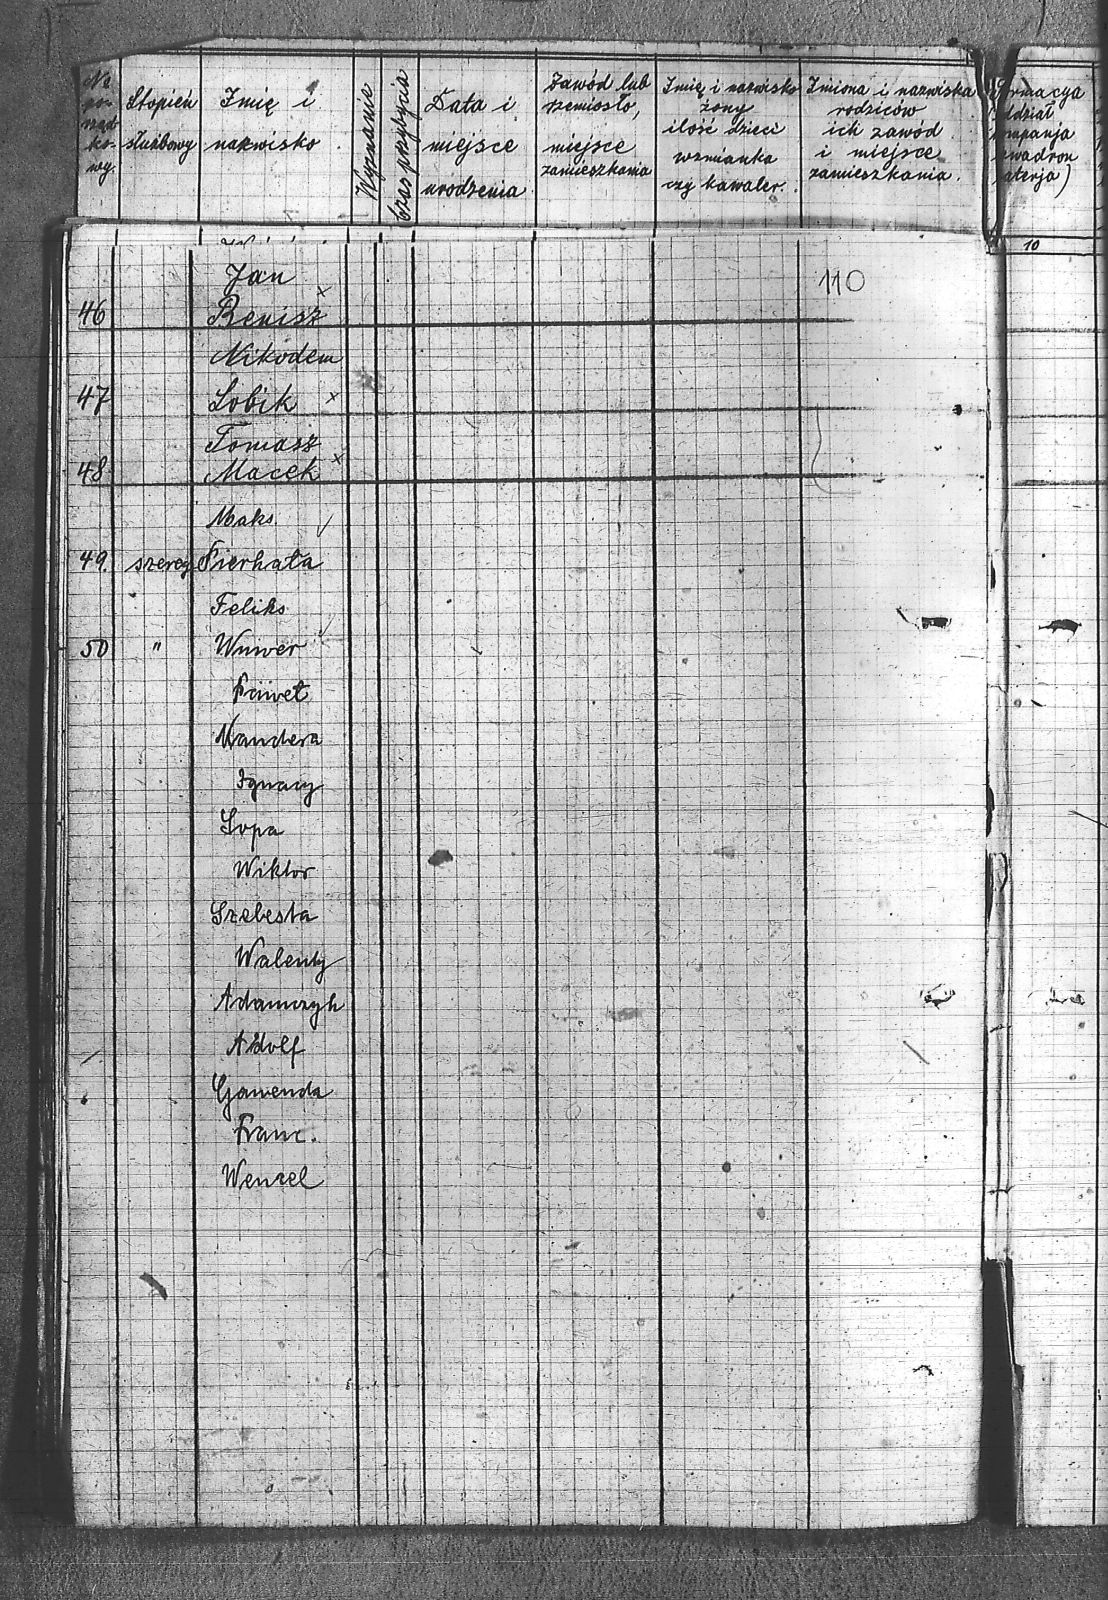 No porządkowy.
Stopień służbowy
Imię i nazwisko.
Wyznanie
Czas przybycia
Data i miejsce urodzenia
Zawód lub rzemiosło, miejsce zamieszkania
Imię i nazwisko żony ilość dzieci wzmianka czy kawaler.
Imiona i nazwiska rodziców ich zawód i miejsce zamieszkania.
10
Jan
110
46 Renisz x
Nikodem
47 Sobik x
Tomasz
48 Macek x
Maks.
49. szereg Pierhała
Feliks
50 " Wuwer
Paweł
Mandera
Ignacy
Sopa
Wiktor
Szebesta
Walenty
Adamczyk
Adolf
Gawenda
Franc.
Wenzel